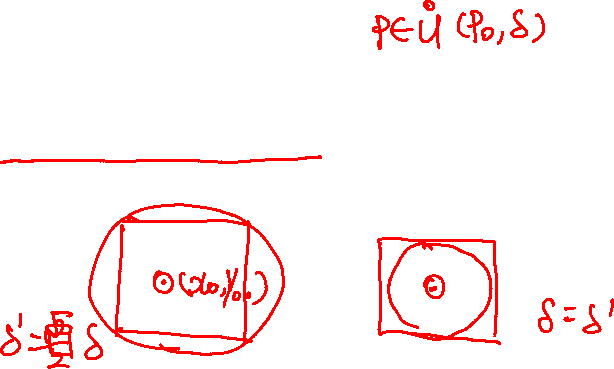 P∈Ů(P₀,δ)
(x₀,y₀)
δ=δ'
δ'= δ